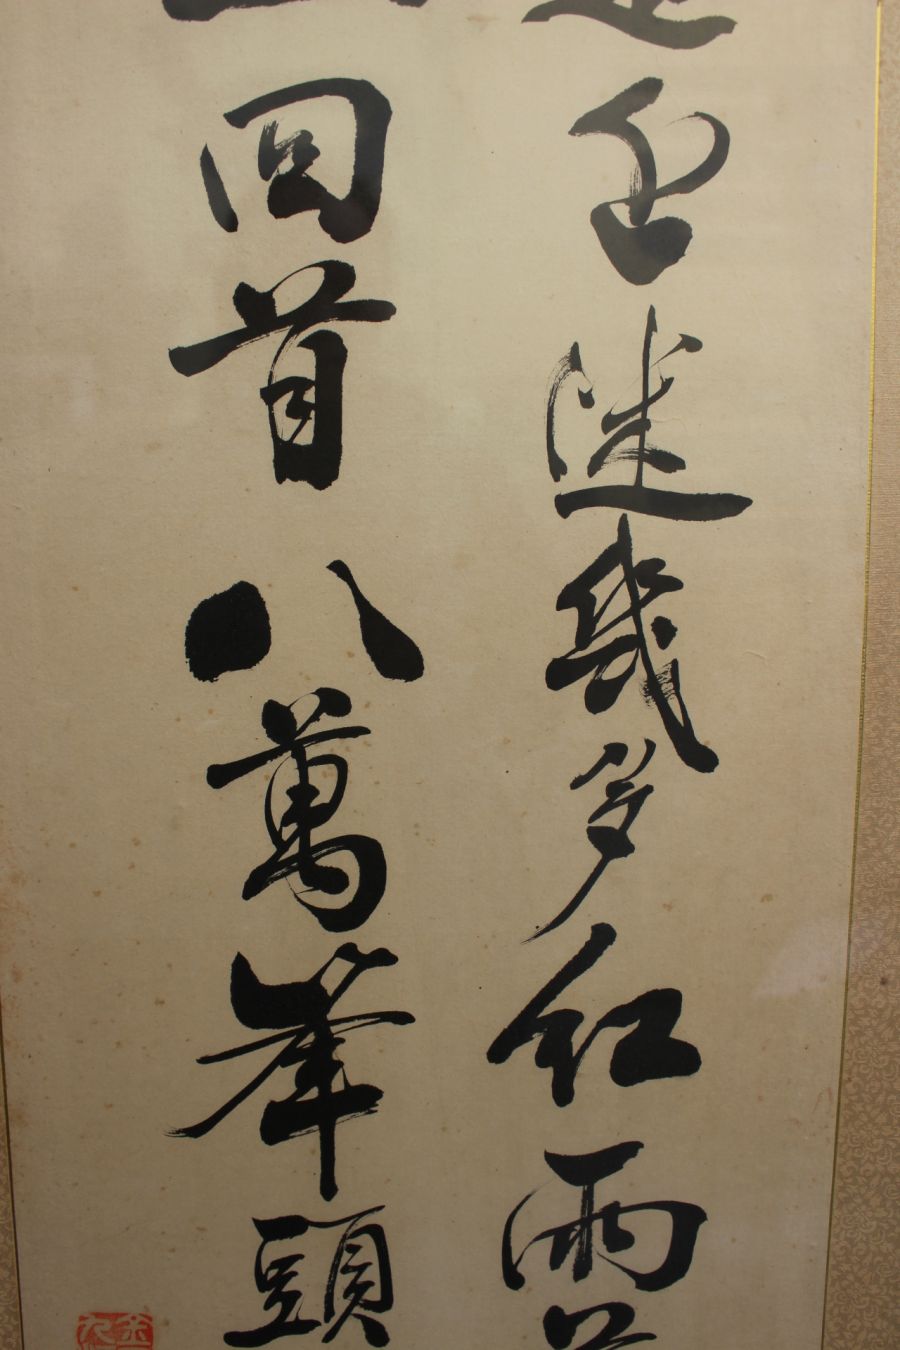 迷幾多紅雨
回首八萬峯頭
金九